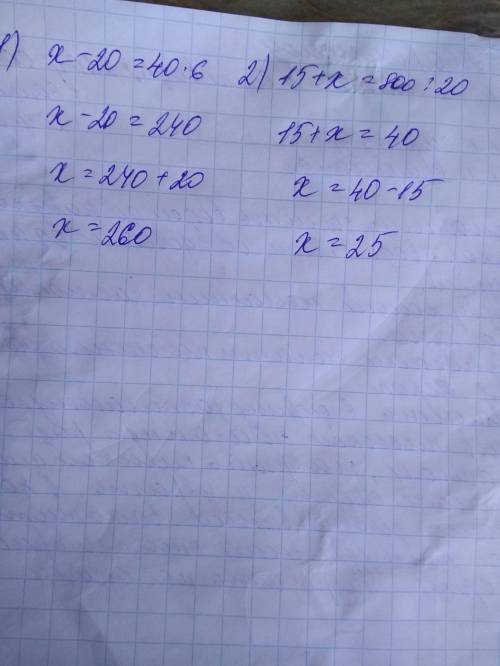 1) x - 20 = 40 · 6
x - 20 = 240
x = 240 + 20
x = 260
2) 15 + x = 800 : 20
15 + x = 40
x = 40 - 15
x = 25